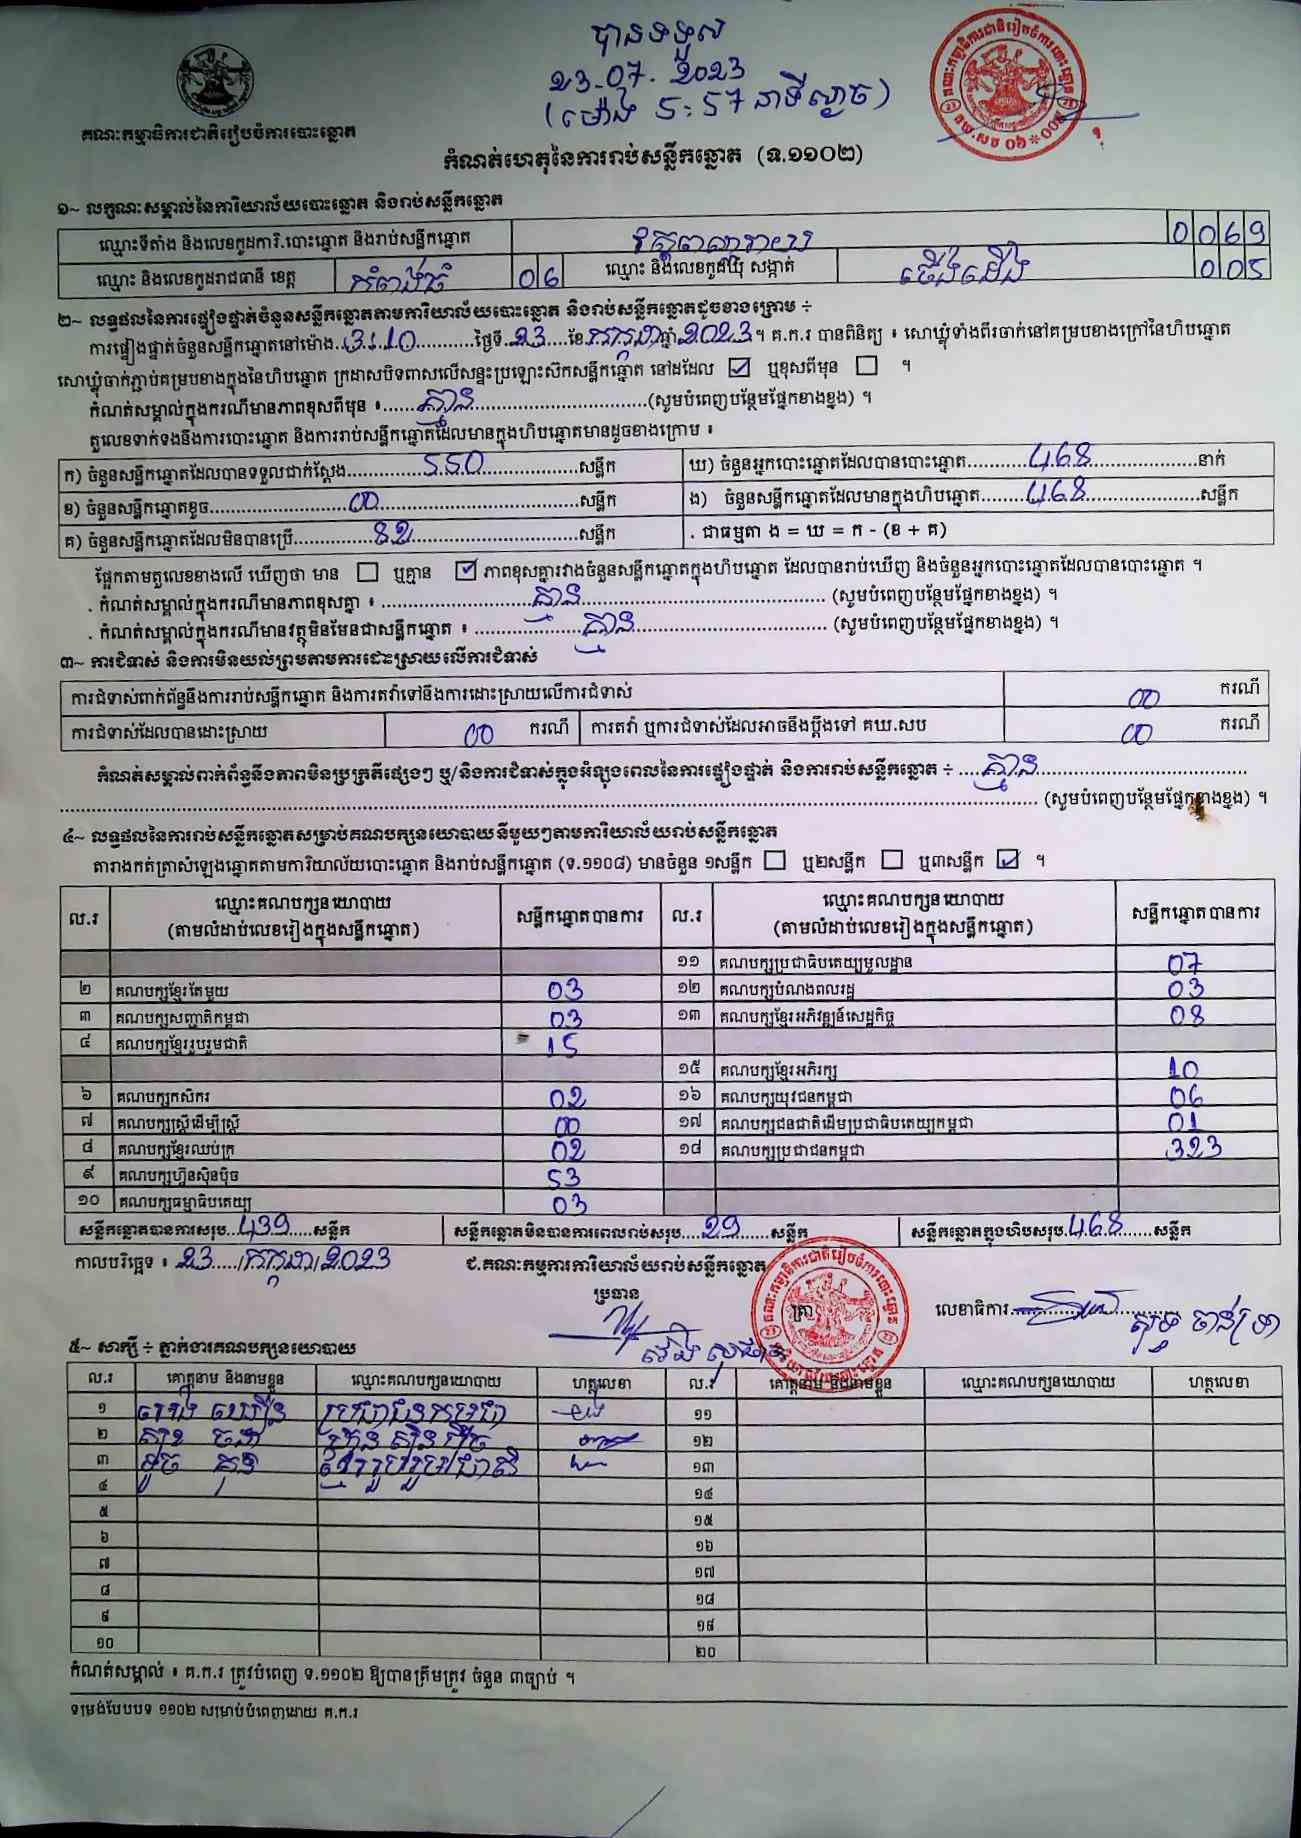 បានទទួល
23.07.2023
(ម៉ោង 5:57 នាទីល្ងាច)
គណៈកម្មាធិការជាតិរៀបចំការបោះឆ្នោត
កំណត់ហេតុនៃការរាប់សន្លឹកឆ្នោត (ទ.១១០២)
១~ លក្ខណៈសម្គាល់នៃការិយាល័យបោះឆ្នោត និងរាប់សន្លឹកឆ្នោត
ឈ្មោះទីតាំង និងលេខកូដការិ.បោះឆ្នោត និងរាប់សន្លឹកឆ្នោត 0069
ឈ្មោះ និងលេខកូដរាជធានី ខេត្ត កំពង់ធំ 06 ឈ្មោះ និងលេខកូដឃុំ សង្កាត់ ជើងដើង 005
២~ លទ្ធផលនៃការផ្ទៀងផ្ទាត់ចំនួនសន្លឹកឆ្នោតតាមការិយាល័យបោះឆ្នោត និងរាប់សន្លឹកឆ្នោតដូចខាងក្រោម ÷
ការផ្ទៀងផ្ទាត់ចំនួនសន្លឹកឆ្នោតនៅម៉ោង 3:10 ថ្ងៃទី 23 ខែ កក្កដា ឆ្នាំ 2023 ។ គ.ក.រ បានពិនិត្យ ៖ សោឃ្លុំទាំងពីរចាក់នៅគម្របខាងក្រៅនៃហិបឆ្នោត
សោឃ្លុំចាក់ភ្ជាប់គម្របខាងក្នុងនៃហិបឆ្នោត ក្រដាសបិទពាសលើសន្ទះប្រឡោះស៊កសន្លឹកឆ្នោត នៅដដែល ☑ ឬខុសពីមុន ☐ ។
កំណត់សម្គាល់ក្នុងករណីមានភាពខុសពីមុន ៖ គ្មាន (សូមបំពេញបន្ថែមផ្នែកខាងខ្នង) ។
តួលេខទាក់ទងនឹងការបោះឆ្នោត និងការរាប់សន្លឹកឆ្នោតដែលមានក្នុងហិបឆ្នោតមានដូចខាងក្រោម ៖
ក) ចំនួនសន្លឹកឆ្នោតដែលបានទទួលជាក់ស្តែង 550 សន្លឹក ឃ) ចំនួនអ្នកបោះឆ្នោតដែលបានបោះឆ្នោត 468 នាក់
ខ) ចំនួនសន្លឹកឆ្នោតខូច 00 សន្លឹក ង) ចំនួនសន្លឹកឆ្នោតដែលមានក្នុងហិបឆ្នោត 468 សន្លឹក
គ) ចំនួនសន្លឹកឆ្នោតដែលមិនបានប្រើ 82 សន្លឹក . ជាធម្មតា ង = ឃ = ក - (ខ + គ)
ផ្អែកតាមតួលេខខាងលើ ឃើញថា មាន ☐ ឬគ្មាន ☑ ភាពខុសគ្នារវាងចំនួនសន្លឹកឆ្នោតក្នុងហិបឆ្នោត ដែលបានរាប់ឃើញ និងចំនួនអ្នកបោះឆ្នោតដែលបានបោះឆ្នោត ។
. កំណត់សម្គាល់ក្នុងករណីមានភាពខុសគ្នា ៖ គ្មាន (សូមបំពេញបន្ថែមផ្នែកខាងខ្នង) ។
. កំណត់សម្គាល់ក្នុងករណីមានវត្ថុមិនមែនជាសន្លឹកឆ្នោត ៖ គ្មាន (សូមបំពេញបន្ថែមផ្នែកខាងខ្នង) ។
៣~ ការជំទាស់ និងការមិនយល់ព្រមតាមការដោះស្រាយលើការជំទាស់
ការជំទាស់ពាក់ព័ន្ធនឹងការរាប់សន្លឹកឆ្នោត និងការតវ៉ាទៅនឹងការដោះស្រាយលើការជំទាស់ 00 ករណី
ការជំទាស់ដែលបានដោះស្រាយ 00 ករណី ការតវ៉ា ឬការជំទាស់ដែលអាចនឹងប្តឹងទៅ គឃ.សប 00 ករណី
កំណត់សម្គាល់ពាក់ព័ន្ធនឹងភាពមិនប្រក្រតីផ្សេងៗ ឬ/និងការជំទាស់ក្នុងអំឡុងពេលនៃការផ្ទៀងផ្ទាត់ និងការរាប់សន្លឹកឆ្នោត ÷ គ្មាន
(សូមបំពេញបន្ថែមផ្នែកខាងខ្នង) ។
៤~ លទ្ធផលនៃការរាប់សន្លឹកឆ្នោតសម្រាប់គណបក្សនយោបាយនីមួយៗតាមការិយាល័យរាប់សន្លឹកឆ្នោត
តារាងកត់ត្រាសំឡេងឆ្នោតតាមការិយាល័យបោះឆ្នោត និងរាប់សន្លឹកឆ្នោត (ទ.១១០៨) មានចំនួន ១សន្លឹក ☐ ឬ២សន្លឹក ☐ ឬ៣សន្លឹក ☑ ។
ល.រ ឈ្មោះគណបក្សនយោបាយ (តាមលំដាប់លេខរៀងក្នុងសន្លឹកឆ្នោត) សន្លឹកឆ្នោតបានការ ល.រ ឈ្មោះគណបក្សនយោបាយ (តាមលំដាប់លេខរៀងក្នុងសន្លឹកឆ្នោត) សន្លឹកឆ្នោតបានការ
១១ គណបក្សប្រជាធិបតេយ្យមូលដ្ឋាន 07
២ គណបក្សខ្មែរតែមួយ 03 ១២ គណបក្សបំណងពលរដ្ឋ 03
៣ គណបក្សសញ្ជាតិកម្ពុជា 03 ១៣ គណបក្សខ្មែរអភិវឌ្ឍន៍សេដ្ឋកិច្ច 08
៤ គណបក្សខ្មែររួបរួមជាតិ 15
១៥ គណបក្សខ្មែរអភិរក្ស 10
៦ គណបក្សកសិករ 02 ១៦ គណបក្សយុវជនកម្ពុជា 06
៧ គណបក្សស្ត្រីដើម្បីស្ត្រី 00 ១៧ គណបក្សជនជាតិដើមប្រជាធិបតេយ្យកម្ពុជា 01
៨ គណបក្សខ្មែរឈប់ក្រ 02 ១៨ គណបក្សប្រជាជនកម្ពុជា 323
៩ គណបក្សហ៊្វុនស៊ិនប៉ិច 53
១០ គណបក្សធម្មាធិបតេយ្យ 03
សន្លឹកឆ្នោតបានការសរុប 439 សន្លឹក សន្លឹកឆ្នោតមិនបានការពេលរាប់សរុប 29 សន្លឹក សន្លឹកឆ្នោតក្នុងហិបសរុប 468 សន្លឹក
កាលបរិច្ឆេទ ៖ 23/កក្កដា/2023 ជ.គណៈកម្មការការិយាល័យរាប់សន្លឹកឆ្នោត
ប្រធាន ត្រា លេខាធិការ
៥~ សាក្សី ÷ ភ្នាក់ងារគណបក្សនយោបាយ
ល.រ គោត្តនាម និងនាមខ្លួន ឈ្មោះគណបក្សនយោបាយ ហត្ថលេខា ល.រ គោត្តនាម និងនាមខ្លួន ឈ្មោះគណបក្សនយោបាយ ហត្ថលេខា
១ ប្រជាជនកម្ពុជា ១១
២ ហ្វ៊ុនស៊ិនប៉ិច ១២
៣ ខ្មែររួបរួមជាតិ ១៣
៤ ១៤
៥ ១៥
៦ ១៦
៧ ១៧
៨ ១៨
៩ ១៩
១០ ២០
កំណត់សម្គាល់ ៖ គ.ក.រ ត្រូវបំពេញ ទ.១១០២ ឱ្យបានត្រឹមត្រូវ ចំនួន ៣ច្បាប់ ។
ទម្រង់បែបបទ ១១០២ សម្រាប់បំពេញដោយ គ.ក.រ